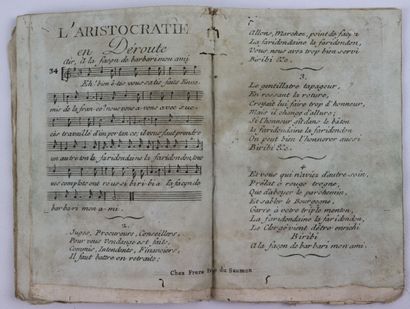 L'ARISTOCRATIE
en Déroute
Air, à la façon de barbari mon ami
34
Eh! bon à tez vous satis faits Enne
mis de la fran ce? nous vous a vons avec suc
cès travaillé d'impor tan ce; il vous faut prendre
un autre ton la faridondaine la faridondon, tous
vos complots ont reussi biribi a la façon de
barbari mon a mi.
2.
Juges, Procureurs, Conseillers,
Pour vous vendange est fait;
Commis, Intendants, Financiers,
Il faut battre en retraite:
Allons, Marchez, point de façon
La faridondaine la faridondon,
Vous nous avez trop bien servi
Biribi &c.
3.
Le gentillatre tapageur,
En rossant la roture,
Croyait lui faire trop d'honneur,
Mais il change d'allure;
Si l'honneur gît dans le bâton
La faridondaine la faridondon
On peut bien l'honnorer aussi
Biribi &c.
4
Et vous qui n'aviez d'autre soin,
Prélat à rouge trogne,
Que d'aboyer le parchemin,
Et sabler le Bourgogne,
Garre à votre triple menton,
La faridondaine la faridondon,
Le Clergé vient d'être enrichi
Biribi
A la façon de barbari mon ami.
Chez Frere du Saumon